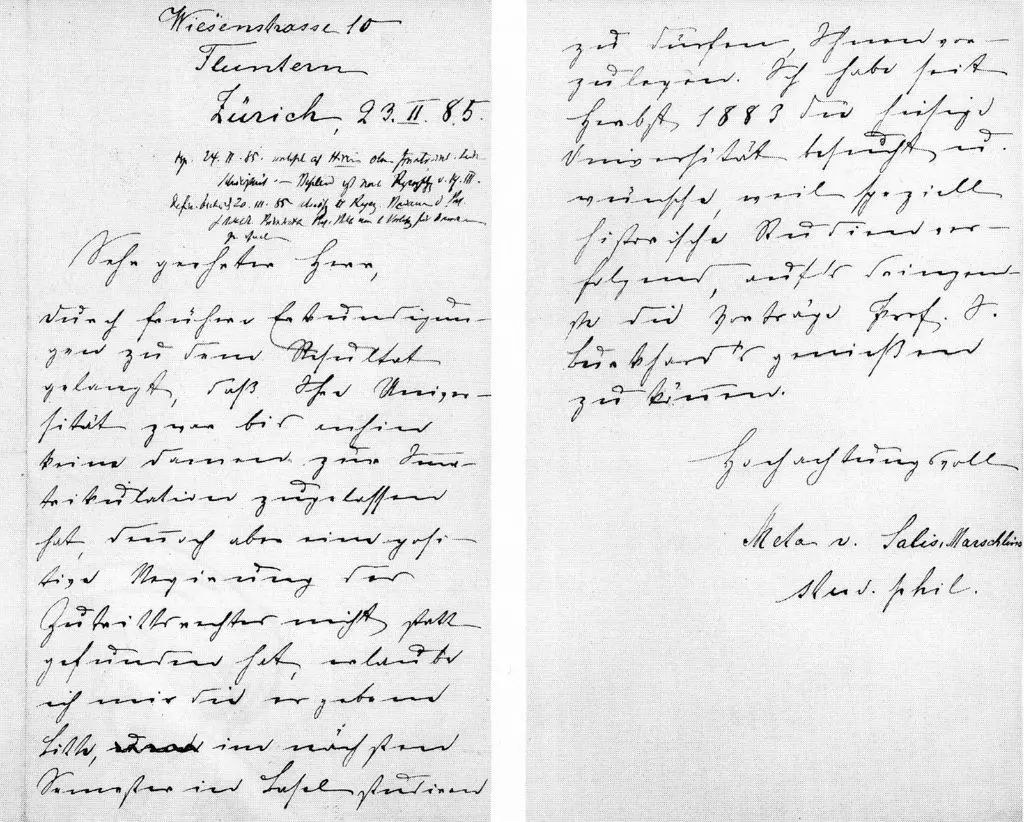 Wiesenstrasse 10
Fluntern
Zürich, 23. II. 85.
24. II. 85.
20. III. 85
Sehr geehrter Herr,
durch frühere Erkundigun-
gen zu dem Resultat
gelangt, daß Ihre Univer-
sität zwar bis anhin
keine Damen zur Imma-
trikulation zugelassen
hat, dennoch aber eine posi-
tive Negierung des
Zutrittsrechtes nicht statt
gefunden hat, erlaube
ich mir die ergebene
Bitte, im nächsten
Semester in Basel studieren
zu dürfen, Ihnen vor-
zulegen. Ich habe seit
Herbst 1883 die hiesige
Universität besucht u.
wünsche, weil speziell
historische Studien ver-
folgend, aufs dringend-
ste die Vorträge Prof. J.
Burkhard's genießen
zu können.
Hochachtungsvoll
Meta v. Salis-Marschlins
stud. phil.